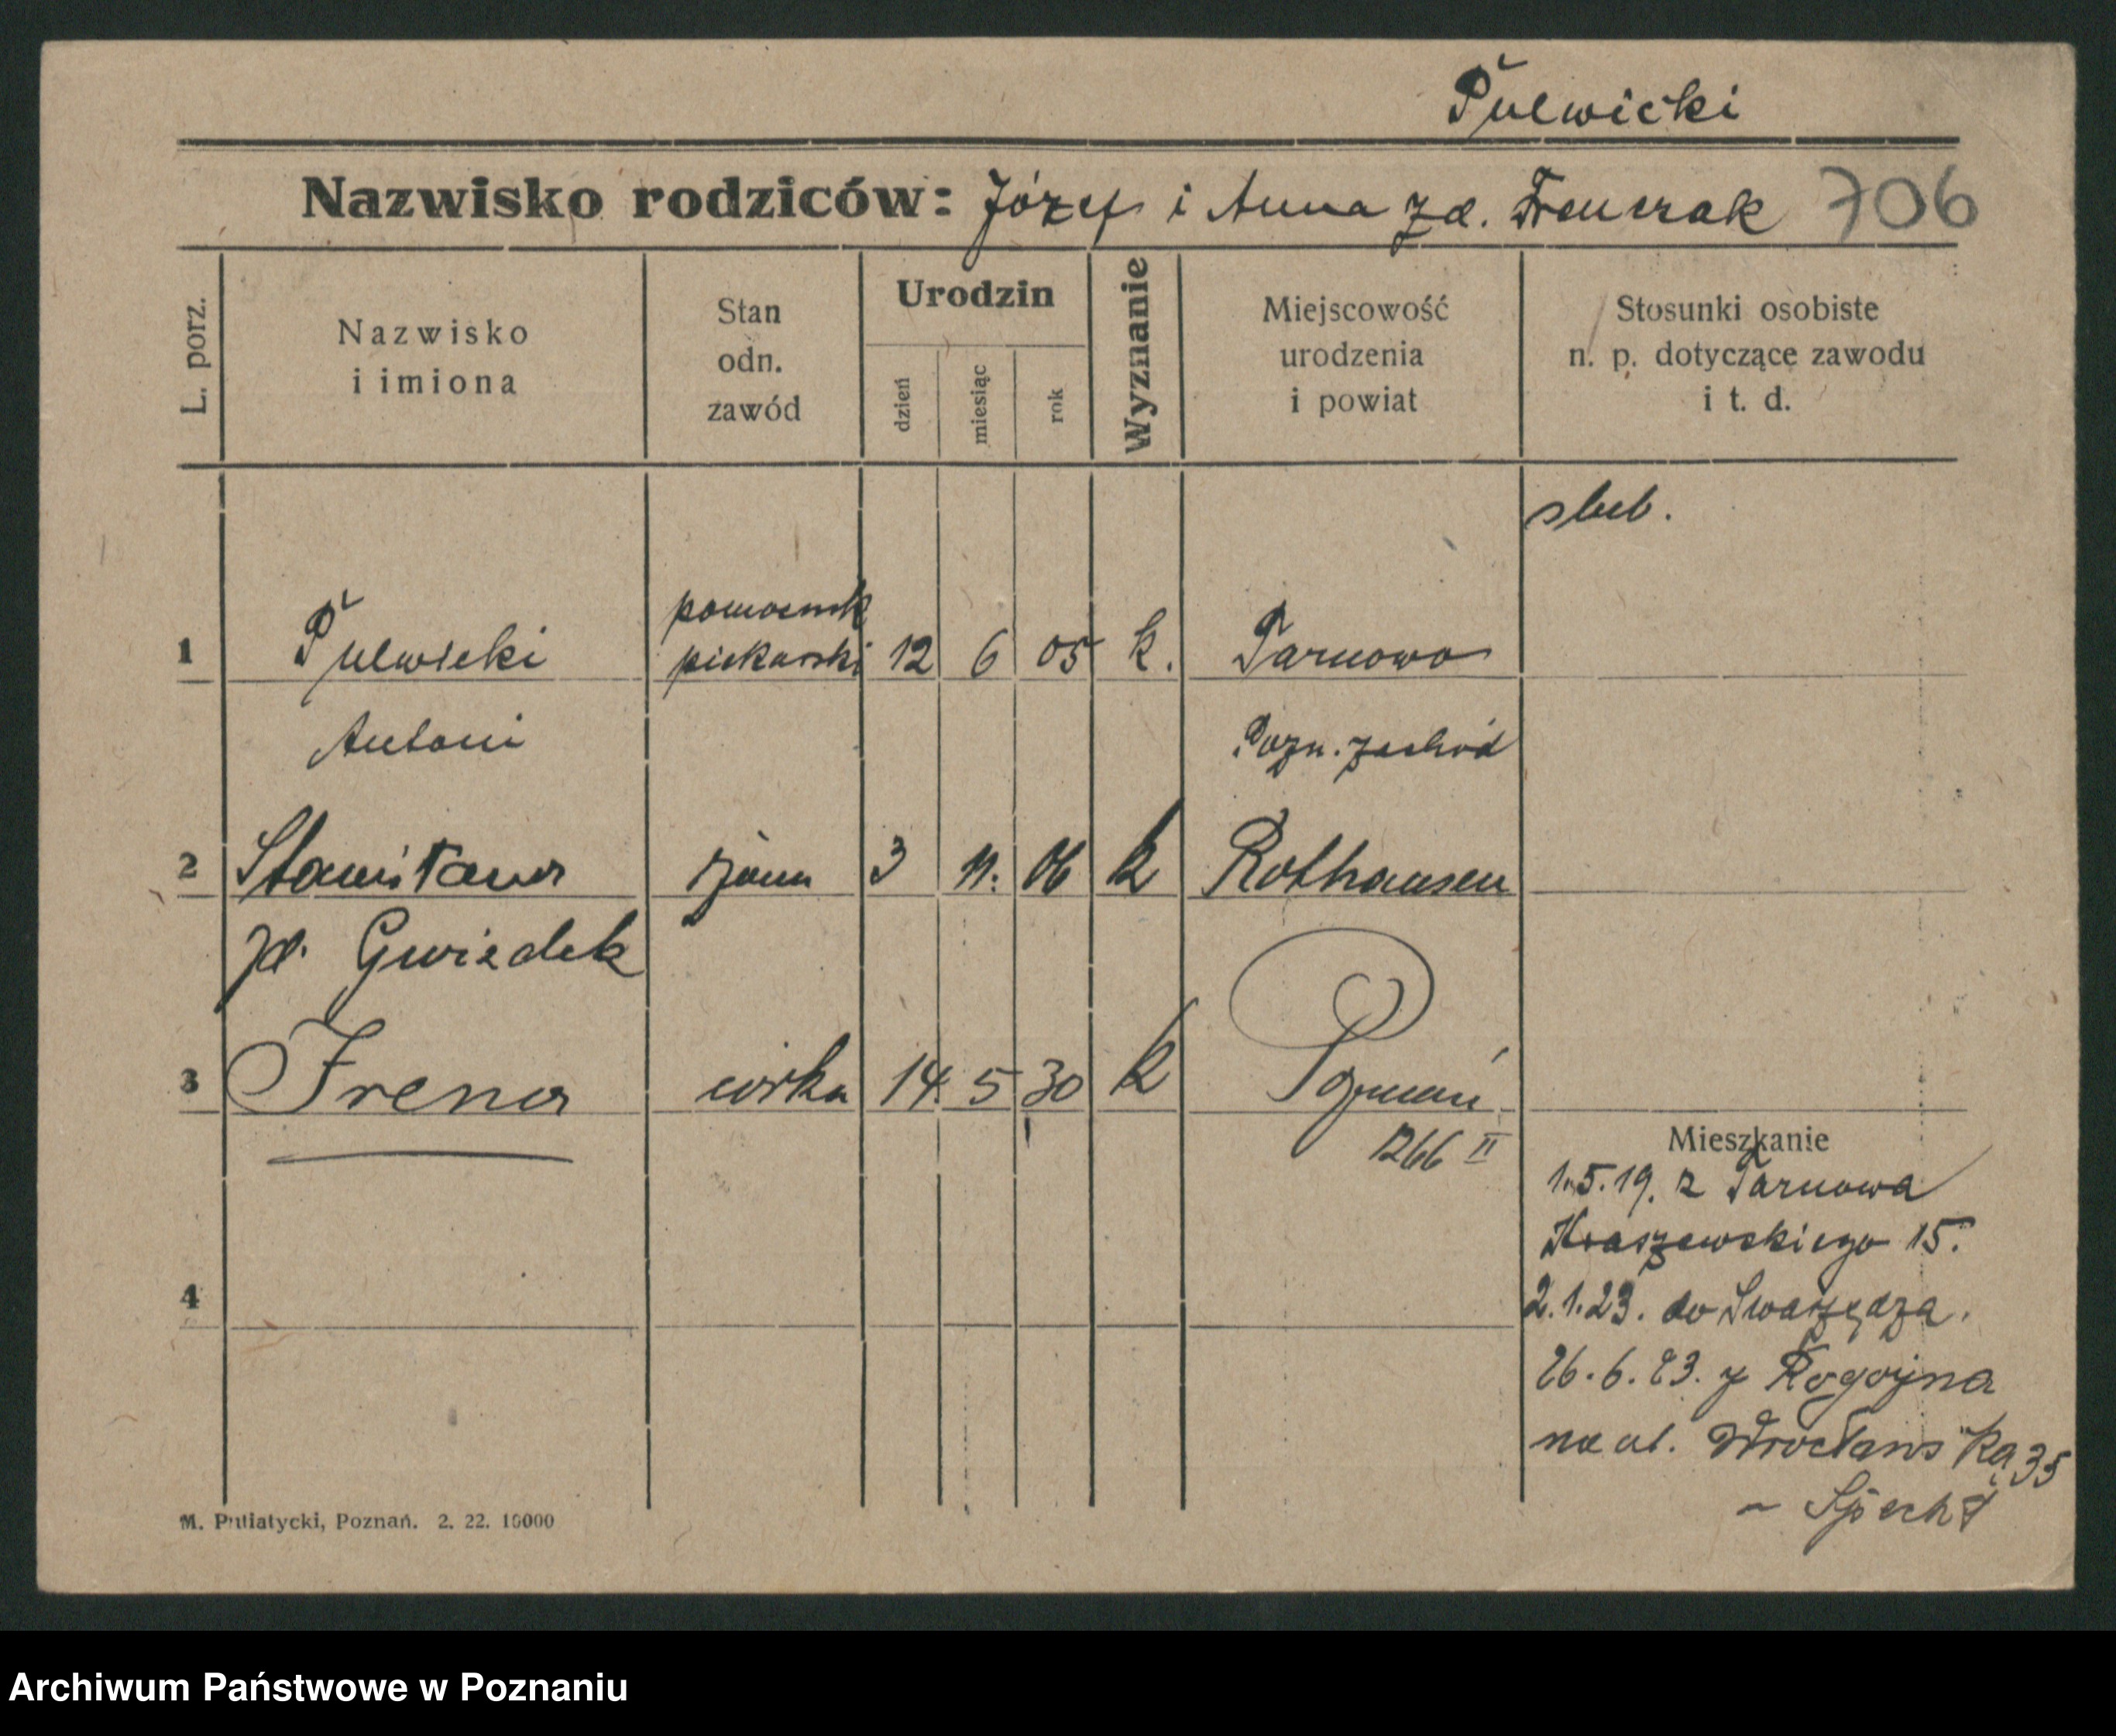 Pulwicki
Nazwisko rodziców: Józef i Anna zd. Frenczak 706
L. porz.
Nazwisko
i imiona
Stan
odn.
zawód
Urodzin
dzień
miesiąc
rok
Wyznanie
Miejscowość
urodzenia
i powiat
Stosunki osobiste
n. p. dotyczące zawodu
i t. d.
slub.
pomocnik
1 Pulwicki piekarski 12 6 05 k. Tarnowo
Antoni Pozn. zachód
2 Stanisława żona 3 11. 06 k Rothausen
zd. Gwizdek
3 Irena córka 14. 5 30 k Poznań
1266 II
Mieszkanie
1.5.19. z Tarnowa
Kraszewskiego 15.
2.1.23. do Swarzędza.
4
26.6.23. z Rogoźna
na ul. Wrocławską 35
~ Specht
M. Putiatycki, Poznań. 2. 22. 10000
Archiwum Państwowe w Poznaniu